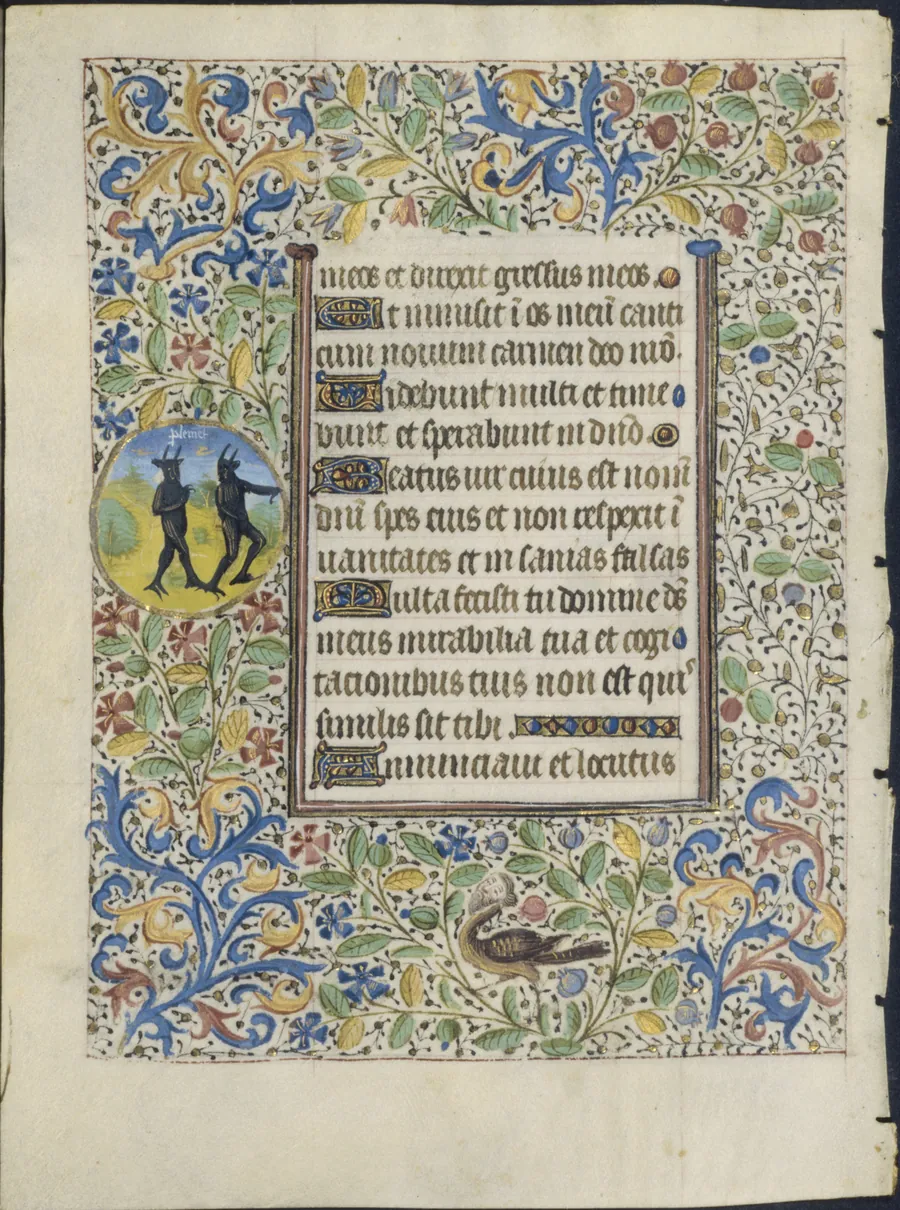 plemet
meos et direxit gressus meos.
Et inmisit ī os meū canti
cum nouum carmen deo nr̄o.
Videbunt multi et time
bunt et sperabunt in dn̄o.
Beatus uir cuius est nomē
dn̄i spes eius et non respexit ī
uanitates et in sanias falsas
Multa fecisti tu domine ds̄
meus mirabilia tua et cogi
tacionibus tuis non est qui
similis sit tibi.
Annunciaui et locutus